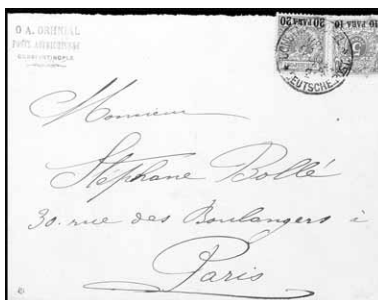 CONSTANTINOPLE
20 PARA 20
10 PARA 10
DEUTSCHE
Monsieur
Stéphane Bollé
30. rue des Boulangers à
Paris